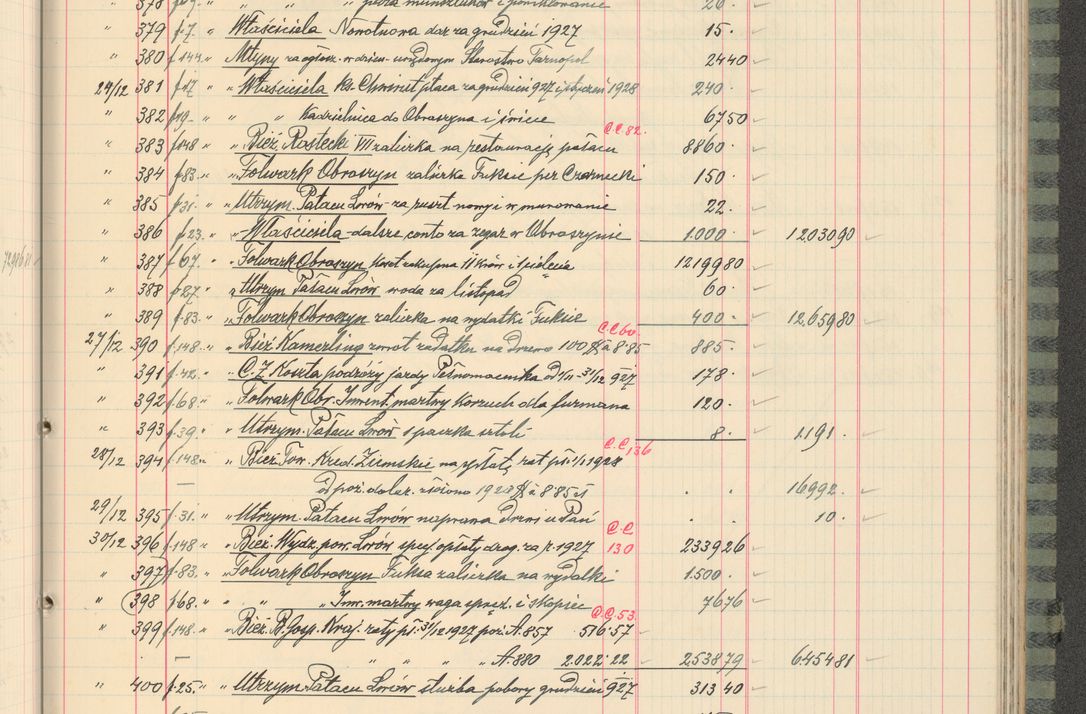 " 378 f " " " "
" 379 f 7. " Właściciela Nowotnowa dar za grudzień 1927 15.
" 380 f 144. " Młyny za ogłosz. w dzien. urzędowym Starostwo Tarnopol 24 40
24/12 381 f 17 " " Właściciela Ks. Chwirut płaca za grudzień 927 i styczeń 1928 240.
" 382 f 19. " " " Kadzielnica do Obroszyna i świece 67 50
C.C. 82.
" 383 f 148 " " Bież. Rostecki VII zaliczka na restaurację pałacu 8860.
" 384 f 83. " " Folwark Obroszyn zaliczka Fuksie per Czarnecki 150.
" 385 f 31. " " Utrzym. Pałacu Lwów - za ruszt nowy i wmurowanie 22.
" 386 f 23. " " Właściciela - dalsze conto za zegar w Obroszynie 1.000. 12030 90
" 387 f 67. " " Folwark Obroszyn zakupna 11 krów i 12199 80
" 388 f 27. " " Utrzym Pałacu Lwów woda za listopad 60.
" 389 f 83. " " Folwark Obroszyn zaliczka na wydatki Fuksie 400. 12.659 80
C.C. 60.
27/12 390 f 148. " " Bież Kamerling zwrot zadatku na drzewo 100 $ à 8.85 885.
" 391 f 42. " " C. Z. Koszta podróży jazdy Pełnomocnika od 1/11 - 31/12 927 178.
" 392 f 68. " " Folwark Obr. Inwent. martwy kożuch dla furmana 120.
" 393 f 39. " " Utrzym. Pałacu Lwów spaczka 8. 1191.
C.C. 136
28/12 394 f 148. " " Bież. Tow. Kred. Ziemskie na spłatę rat pł. 1/1 1928
— od poż. dolar. złożono 1920 $ à 8.85 zł . . 16992.
29/12 395 f 31. " " Utrzym. Pałacu Lwów naprawa drzwi u Pań . . 10.
C.C.
30/12 396 f 148 " " Bież. Wydz. pow. Lwów spec. opłaty drog. za r. 1927 130 2339 26
" 397 f 83. " " Folwark Obroszyn Fuksa zaliczka na wydatki 1.500.
" 398 f 68. " " " " Inw. martwy waga spręż. i skopiec 76 76
C.C. 53.
" 399 f 148. " " Bież. B. Gosp. Kraj. raty pł. 31/12 1927 poż. A. 857 516.57
— " " " " A. 880 2.022.22 2538 79 6454 81
" 400 f 25. " " Utrzym. Pałacu Lwów służba pobory grudzień 927 313 40